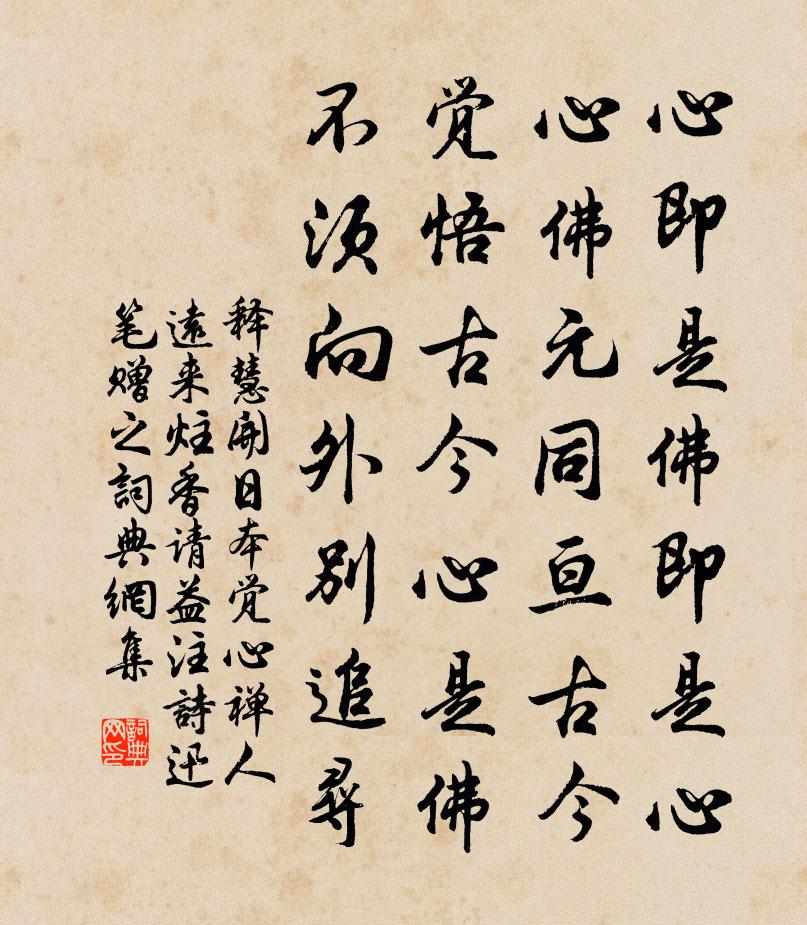 心即是佛即是心
心佛元同亘古今
觉悟古今心是佛
不须向外别追寻
释慧開日本觉心禅人
遠来炷香请益注詩迅
笔赠之詞典網集
詞典
网印